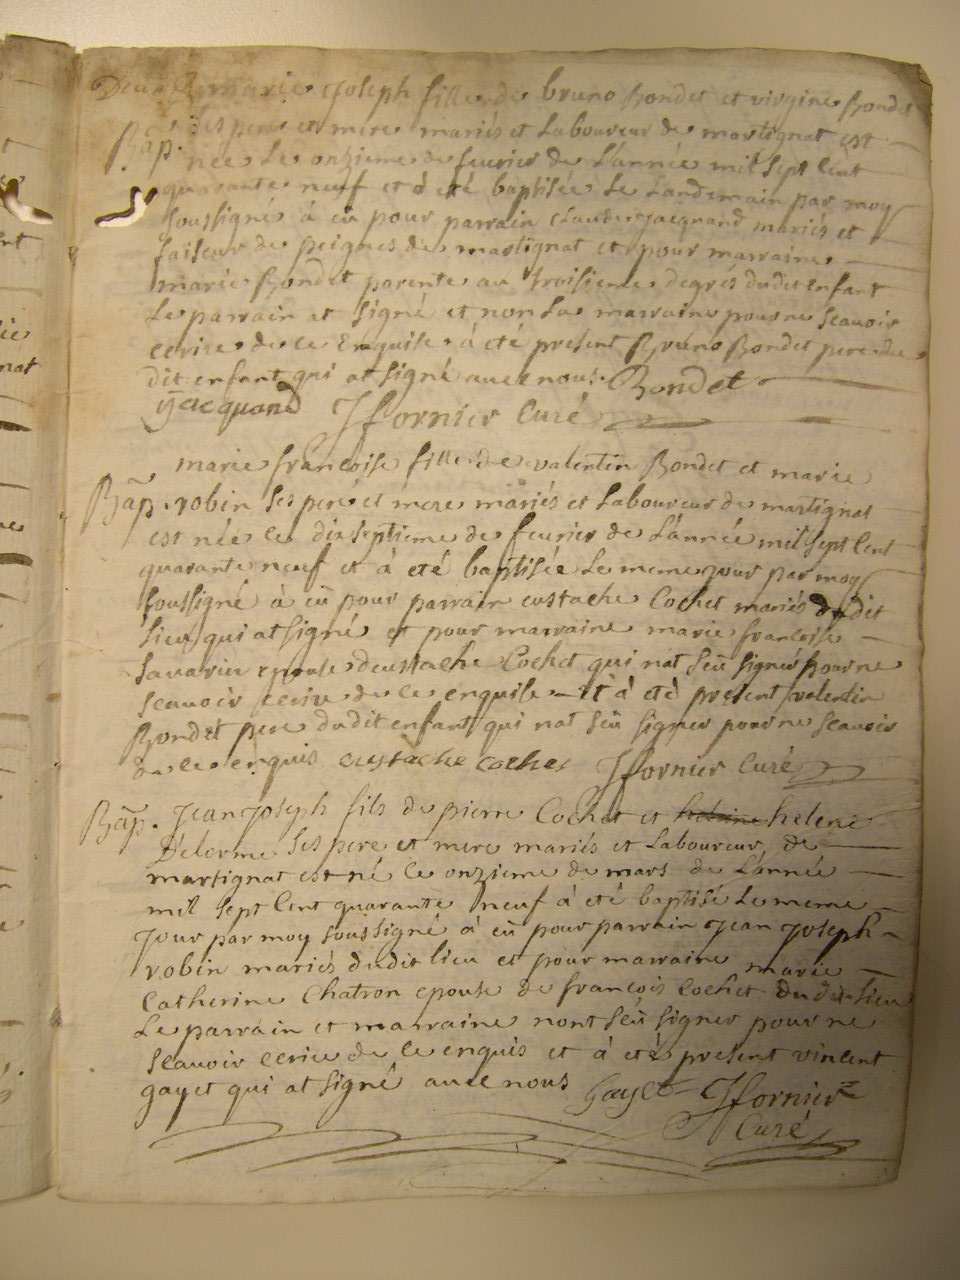 marie Joseph fille de bruno Bondet et virgine Bondet
Bap. ses pere et mere mariés et Laboureur de martignat est
née Le onzieme de feurier de L'année mil sept Cent
quarante neuf et à été baptisée Le Landemain par moy
soussigné à eü pour parrain Claude jacquand mariés et
faiseur de peignes de martignat et pour marraine
marie Bondet parente au troisieme degrés dudit enfant
Le parrain at signé et non La marraine pour ne scauoir
ecrire de ce Enquise à été present Bruno Bondet pere du
dit enfant qui at signé auec nous. Bondet
jacquand Jfornier Curé
marie francoise fille de valentin Bondet et marie
Bap. robin ses pere et mere mariés et Laboureur de martignat
est née le dixseptieme de feurier de L'année mil sept Cent
quarante neuf et à eté baptisée Le meme jour par moy
soussigné à eü pour parrain eustache Cochet mariés dudit
Lieu qui at signé et pour marraine marie francoise
sauarin epouse deustache Cochet qui nat seü signer pour ne
scauoir ecrire de ce enquise et à eté present valentin
Bondet pere dudit enfant qui nat seü signer pour ne scauoir
de ce enquis eustache cochet Jfornier Curé
Bap. Jean joseph fils de pierre Cochet et helene
Delorme ses pere et mere mariés et Laboureur de
martignat est né le onzieme de mars de L'année
mil sept Cent quarante neuf à été baptisé Le meme
jour par moy soussigné à eü pour parrain jean joseph
robin mariés dudit lieu et pour marraine marie
Catherine Chatron epouse de francois Cochet dudit lieu
Le parrain et marraine nont seü signer pour ne
scauoir ecrire de ce enquis et à eté present vincent
gayet qui at signé auec nous Gayet Jfornier
Curé